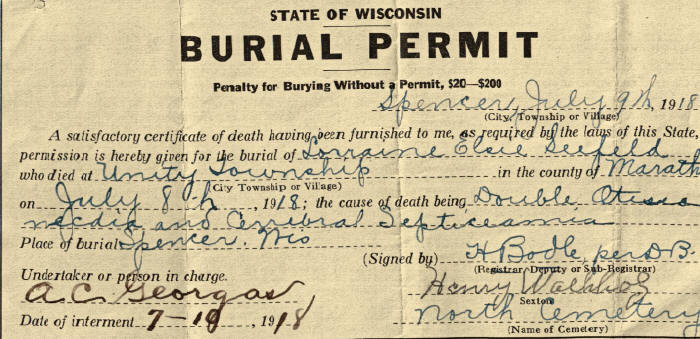 STATE OF WISCONSIN
BURIAL PERMIT
Penalty for Burying Without a Permit, $20—$200
Spencer, July 9th, 1918
(City, Township or Village)
A satisfactory certificate of death having been furnished to me, as required by the laws of this State,
permission is hereby given for the burial of Lorraine Elsie Seefeld
who died at Unity Township in the county of Marath
(City Township or Village)
on July 8th, 1918; the cause of death being Double Otisis
mecdia and Cerribral Septiceamia
Place of burial Spencer. Wis
(Signed by) H Bodle per D B.
(Registrar, Deputy or Sub-Registrar)
Undertaker or person in charge.
A. C. Georgas Henry
Sexton
North Cemetery
Date of interment 7-10, 1918
(Name of Cemetery)